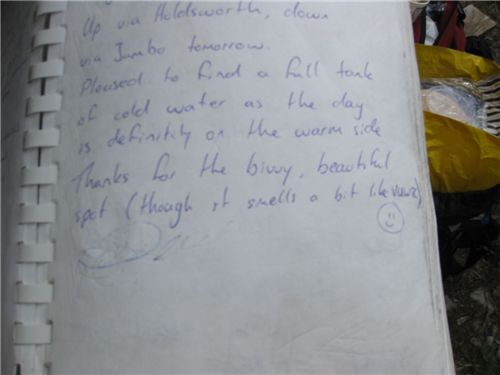 Up via Holdsworth, down
via Jumbo tomorrow.
Pleased to find a full tank
of cold water as the day
is definitily on the warm side
Thanks for the bivvy, beautiful
spot (though it smells a bit like